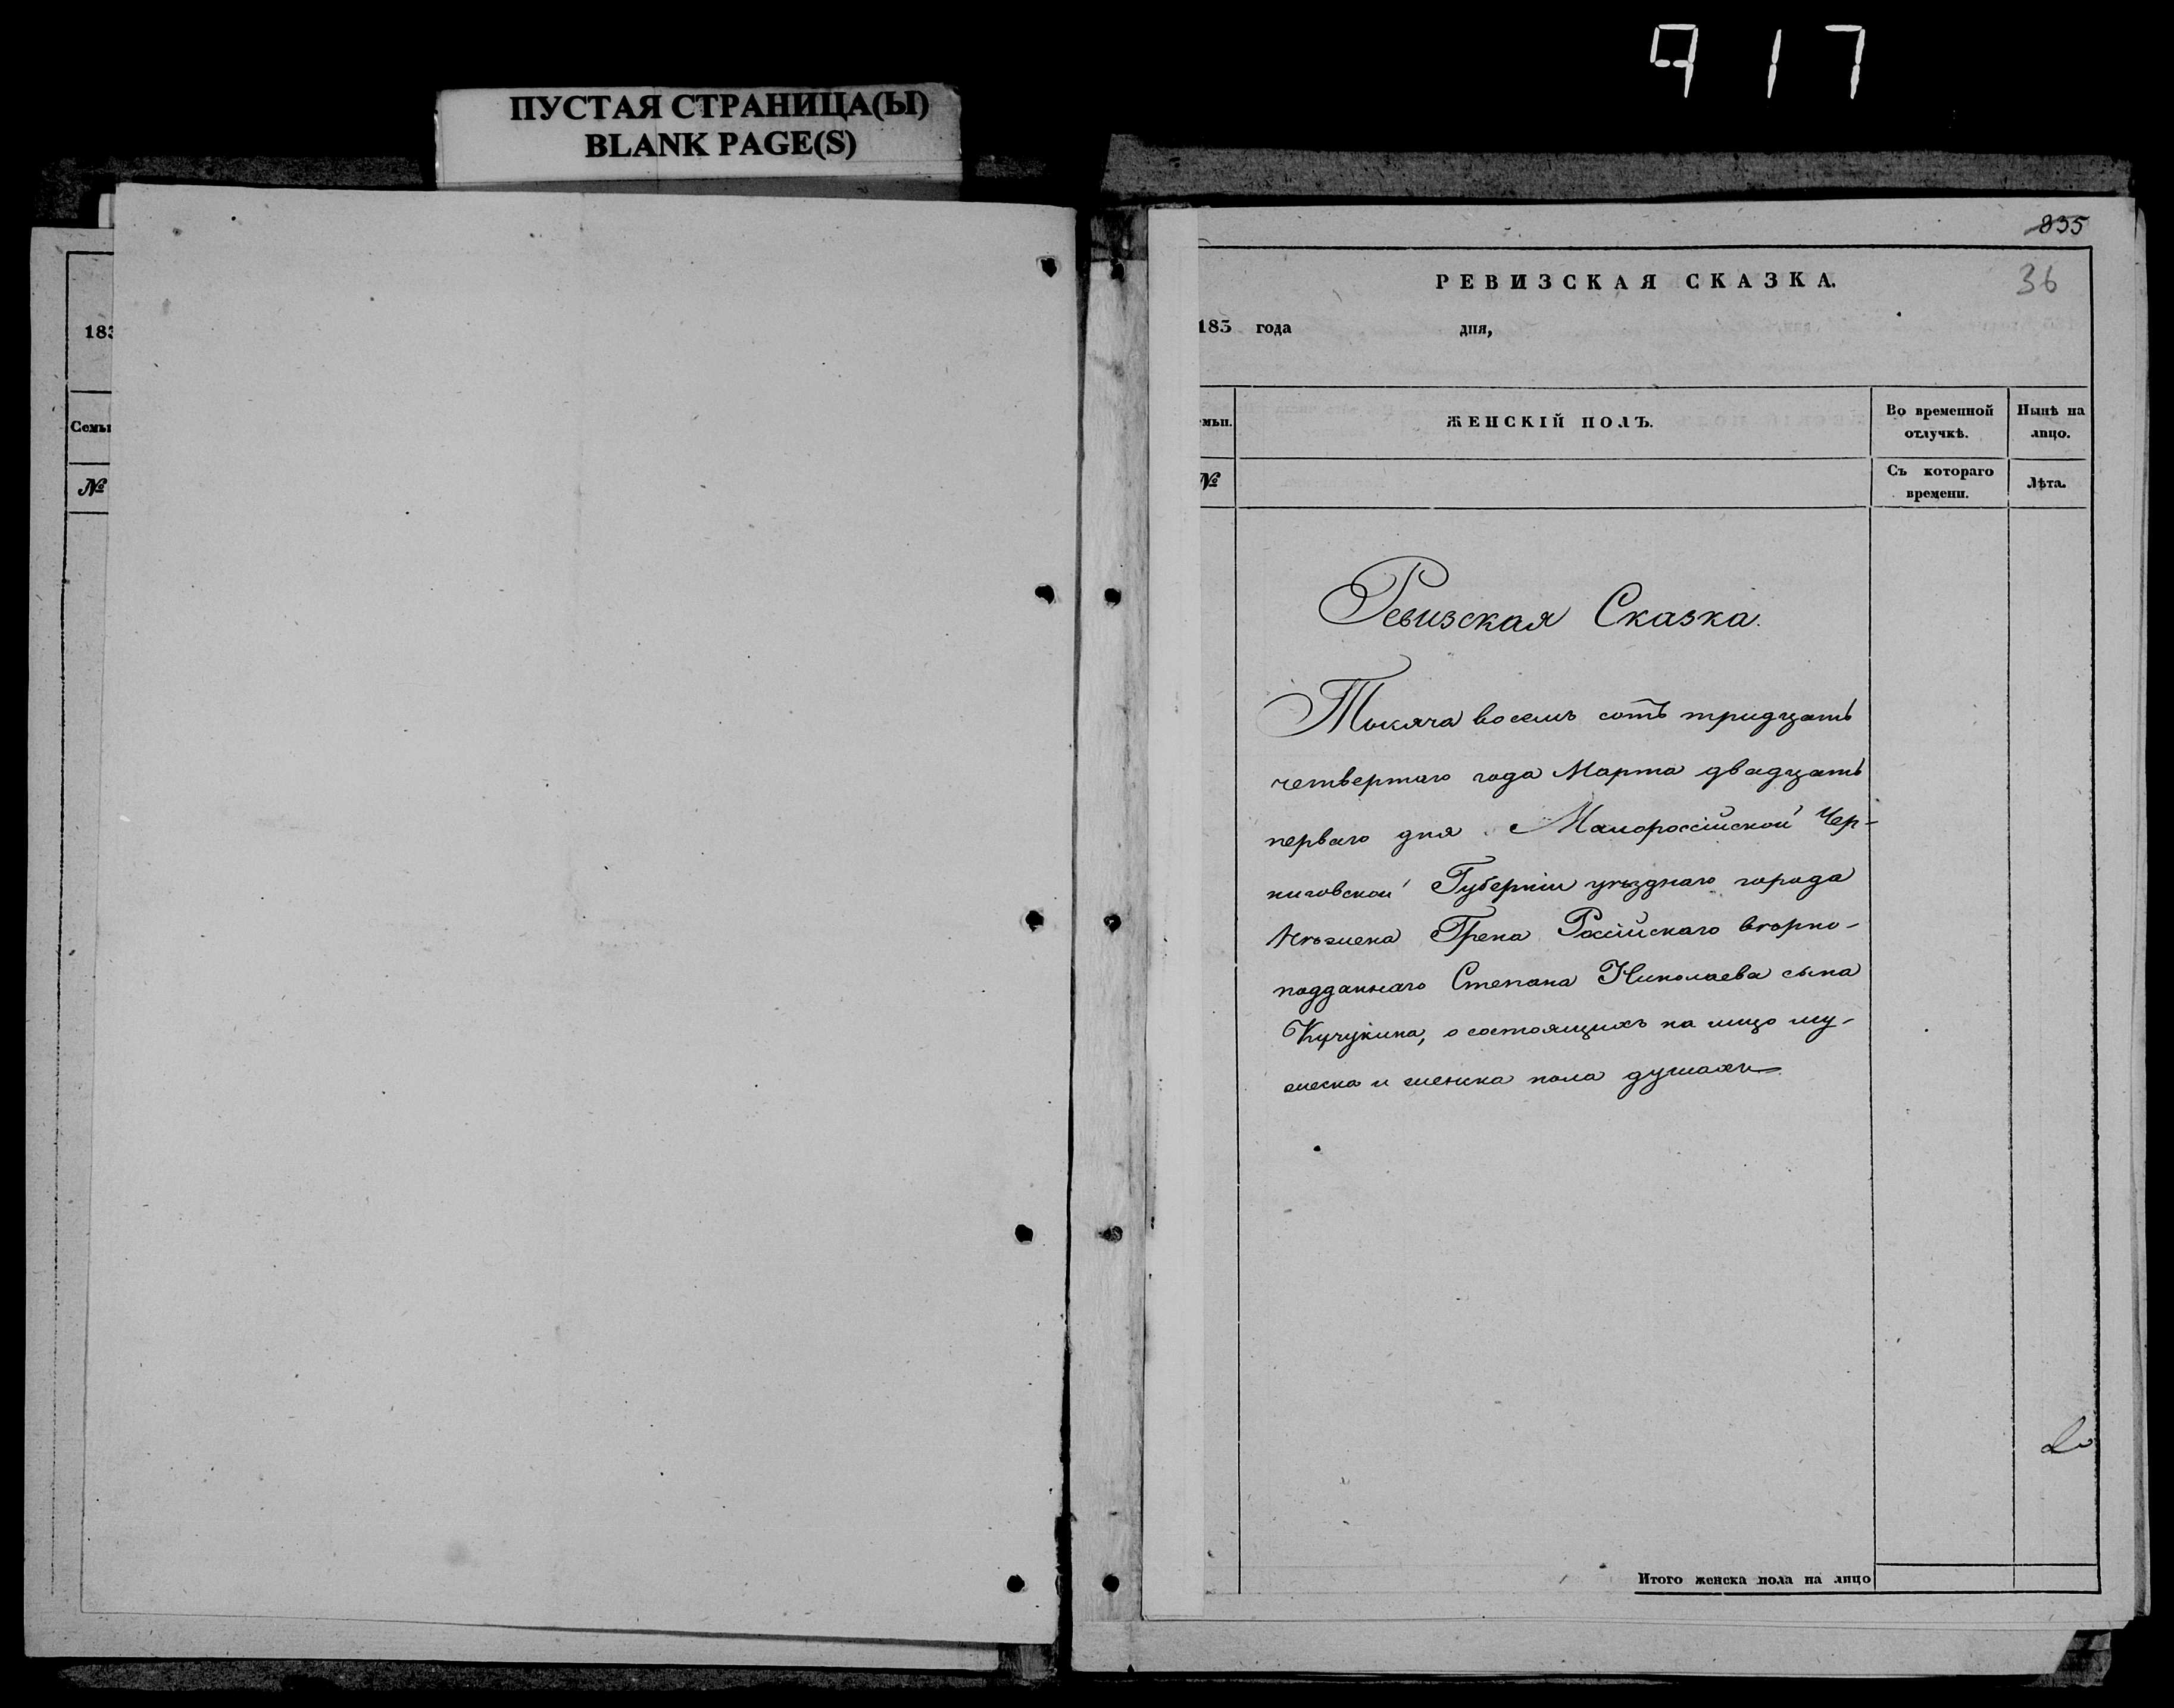 917
ПУСТАЯ СТРАНИЦА(Ы)
BLANK PAGE(S)
183
Семьи
№
835
РЕВИЗСКАЯ СКАЗКА.
36
183 года дня,
емьи.
ЖЕНСКІЙ ПОЛЪ.
Во временной отлучкѣ.
Нынѣ на лицо.
№
Съ котораго времени.
Лѣта.
Ревизская Сказка.
Тысяча восемь сотъ тридцать
четвертаго года Марта двадцать
перваго дня Малороссійской Чер-
ниговской Губерніи уѣзднаго города
Нѣжена Грека Россійскаго вѣрно-
подданнаго Степана Николаева сына
Кучукина, о состоящихъ на лицо му-
жеска и женска пола душахъ
Итого женска пола на лицо